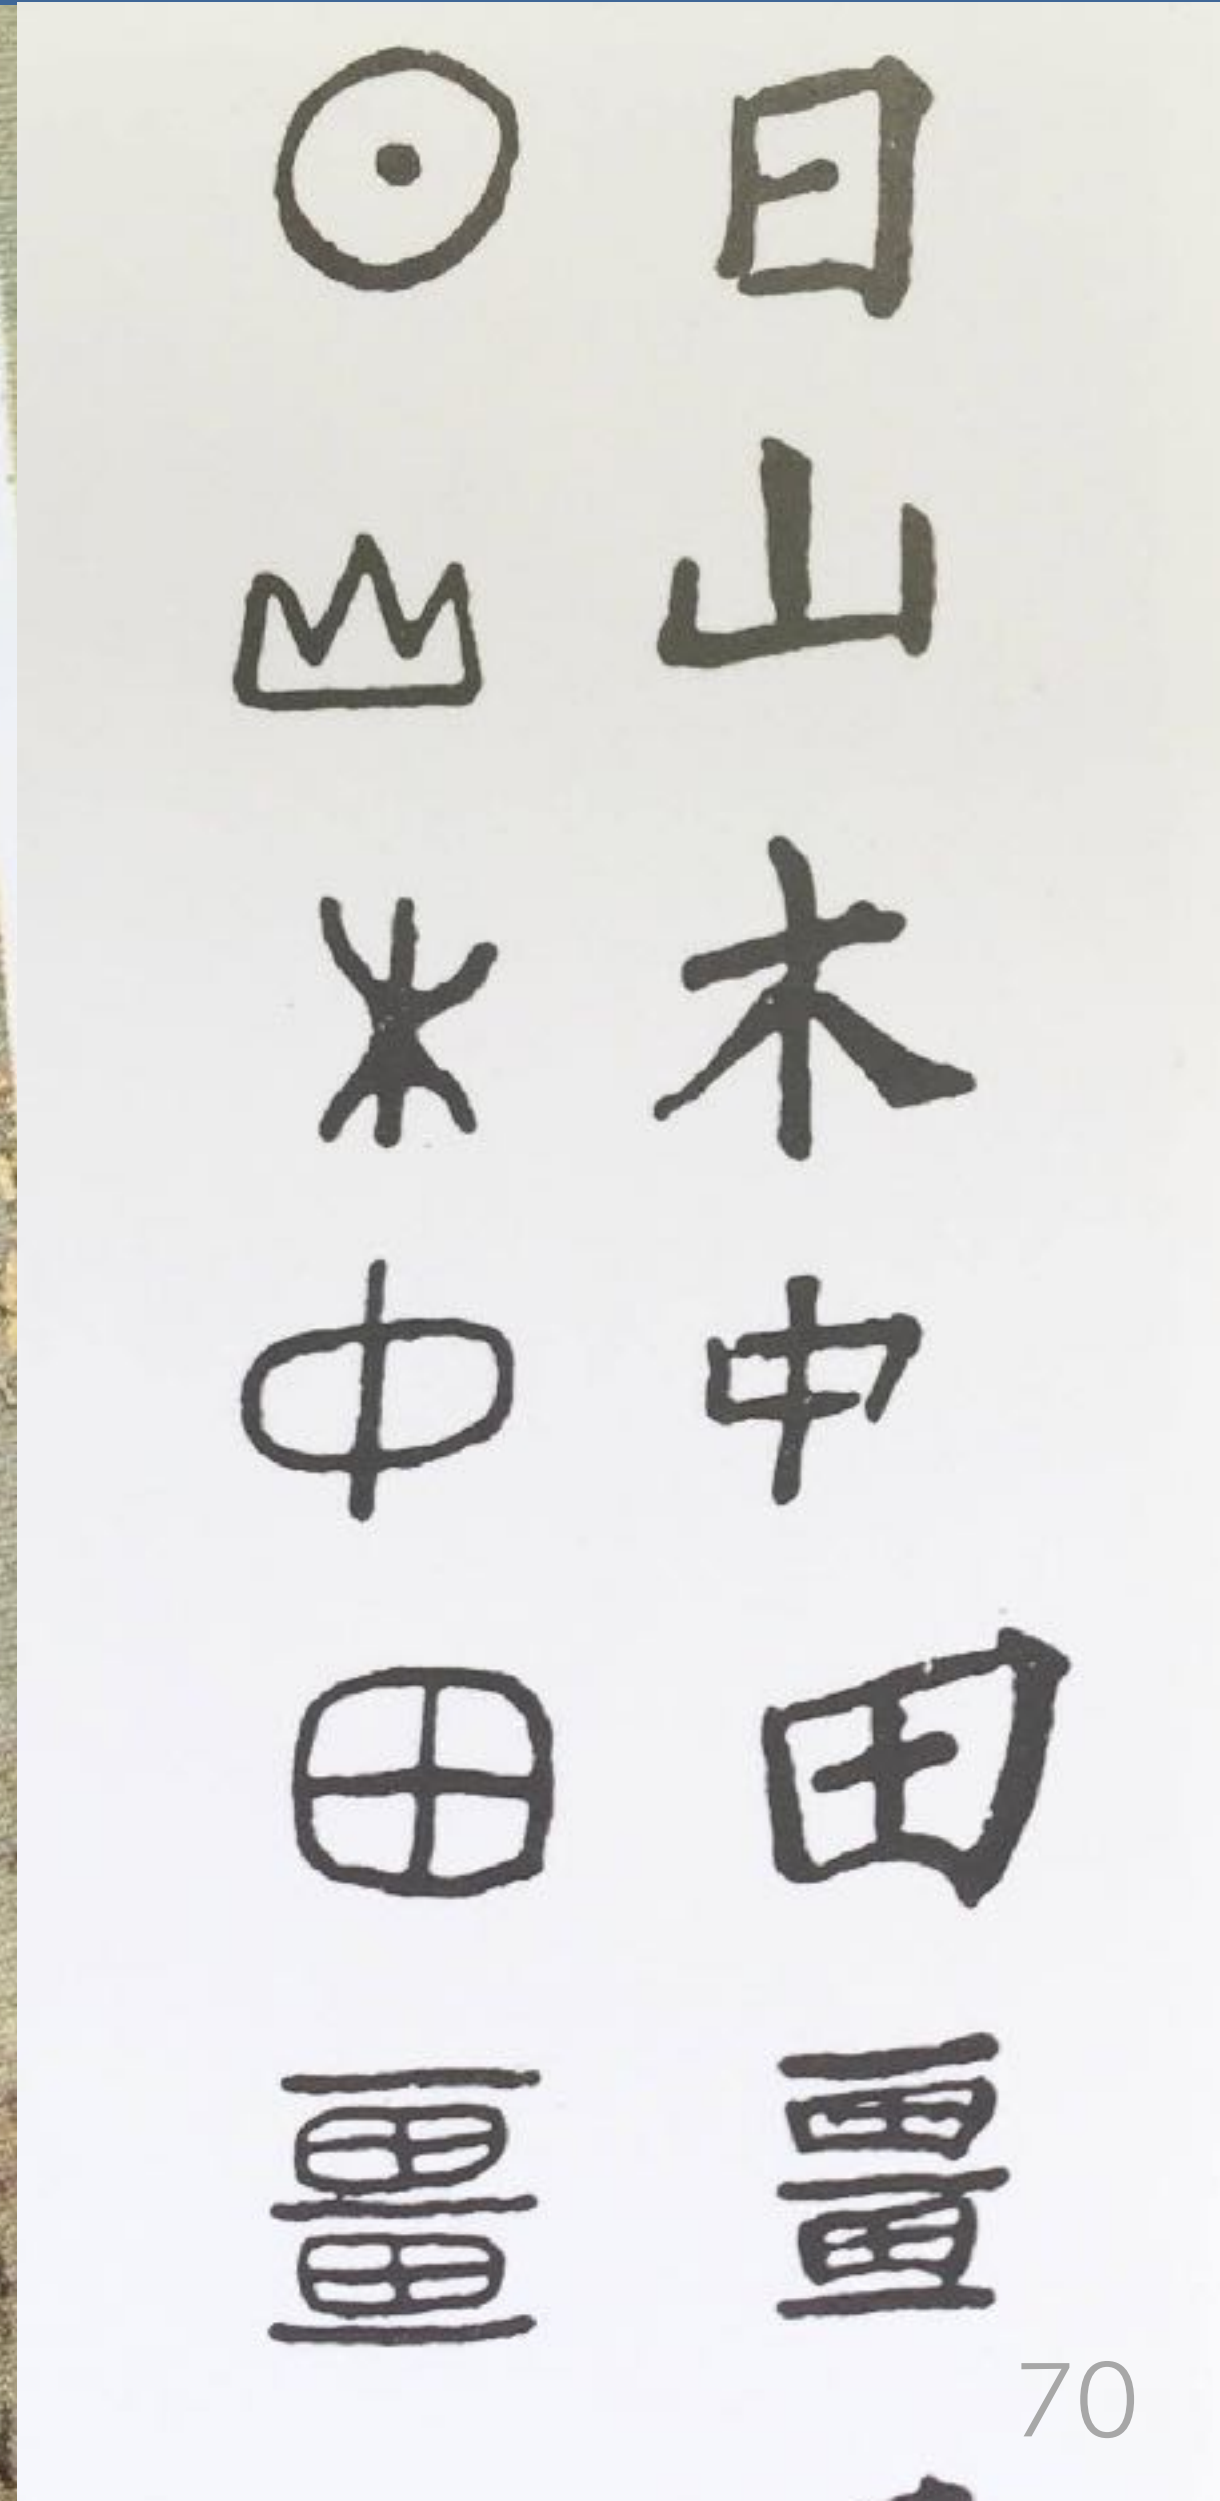 日
山
木
中
田
畺
70